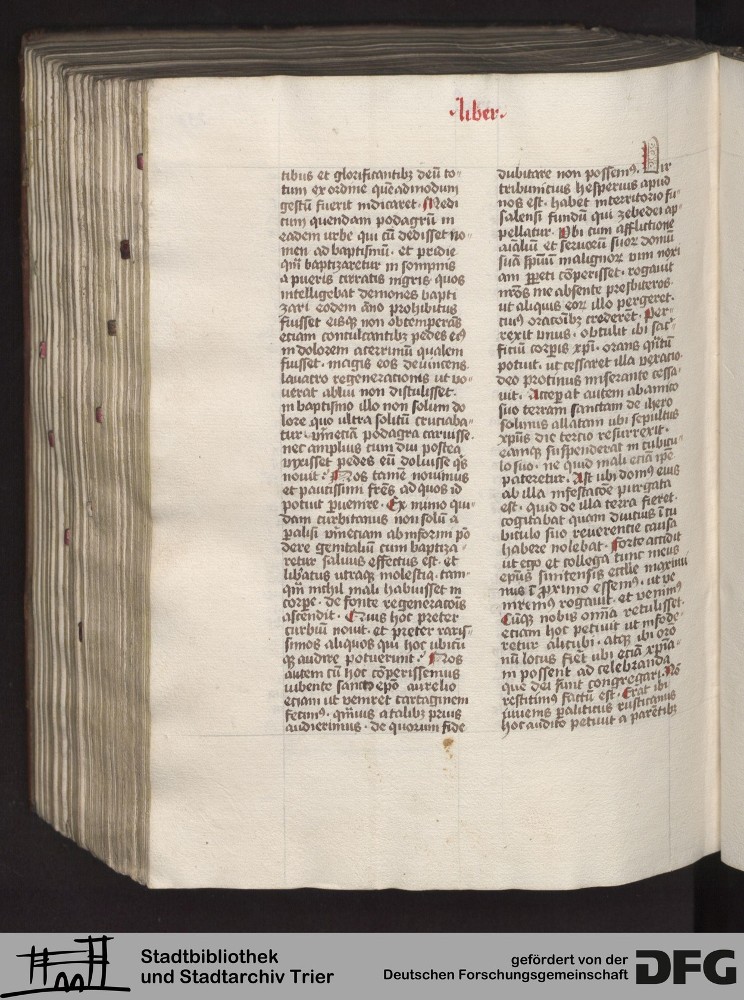 liber
tibus et glorificantibȝ deū to-
tum ex ordine quēadmodum
gestū fuerit indicaret. Medi
cum quendam podagrū in
eadem urbe qui cū dedisset no-
men ad baptismū. et pridie
qm̄ baptizaretur in sompnis
a pueris cirratis nigris quos
intelligebat demones bapti
zari eodem āno prohibitus
fuisset eisqȝ non obtemperās
etiam conculcantibȝ pedes eiꝰ
in dolorem acerrimū qualem
fuisset. magis eos deuincens
lauacro regenerationis ut vo-
uerat ablui non distulisset.
in baptismo illo non solum do
lore quo ultra solitū cruciaba-
tur. verūeciā podagra caruisse.
nec amplius cum diu postea
vixisset pedes eū doluisse qͥs
nouit. Nos tamē nouimus
et paucissimi frēs ad quos id
potuit ꝑuenire. Ex mimo qui-
dam curbitanus non solū a
ꝑalisi verūeciam ab informi pō
dere genitaliū cum baptiza-
retur saluus effectus est. et
lib̄atus utraqȝ molestia. tam-
qm̄ nichil mali habuisset in
corpe. de fonte regeneracōis
ascendit. Quis hoc preter
curbiū nouit. et preter raris-
simos aliquos qui hoc ubicū
qȝ audire potuerūt. Nos
autem cū hoc cōperissemus
iubente sancto epō aurelio
etiam ut veniret cartaginem
fecimꝰ. qm̄uis a talibȝ prius
audierimus. de quorum fide
dubitare non possemꝰ. Vir
tribunicius hesperius apud
nos est. habet in territorio fu-
salensi fundū qui zebedei ap-
pellatur. Vbi cum afflictione
aīaliū et seruorū suoꝝ domū
suā sp̄uū malignoꝝ vim noxi
am ꝑpeti cōperisset. rogauit
nr̄os me absente presbiteros.
ut aliquis eoꝝ illo pergeret.
cuiꝰ oracōibȝ crederēt. Per-
rexit vnus. obtulit ibi sac-
ficiū corpis xp̄i. orans qm̄tū
potuit. ut cessaret illa vexacio
deo protinus miserante cessa-
uit. Acceꝑat autem ab amico
suo terram sanctam de ihero
solimis allatam ubi sepultus
xp̄us die tercio resurrexit.
eamqȝ suspenderat in cubicu-
lo suo. ne quid mali eciā ip̄e
pateretur. Ast ubi domꝰ eius
ab illa infestacōe purgata
est. quid de illa terra fieret
cogitabat quam diutius ī cu
biculo suo reuerentie causa
habere nolebat. Forte accidit
ut ego et collega tunc meus
ep̄us sinitensis ecclīe maximi
nus ī ꝓximo essemꝰ. ut ve
niremꝰ rogauit. et venimꝰ
Cūqȝ nobis om̄ia retulisset.
etiam hoc petiuit ut infode-
retur alicubi. atqȝ ibi oro
nū locus fiēt ubi eciā xp̄ia-
ni possent ad celebranda
que dei sunt congregari. Nō
restitimꝰ factū est. Erat ibi
iuuenis ꝑaliticus rusticanus
hoc audito petiuit a parētibȝ
Stadtbibliothek
und Stadtarchiv Trier
gefördert von der
Deutschen Forschungsgemeinschaft
DFG